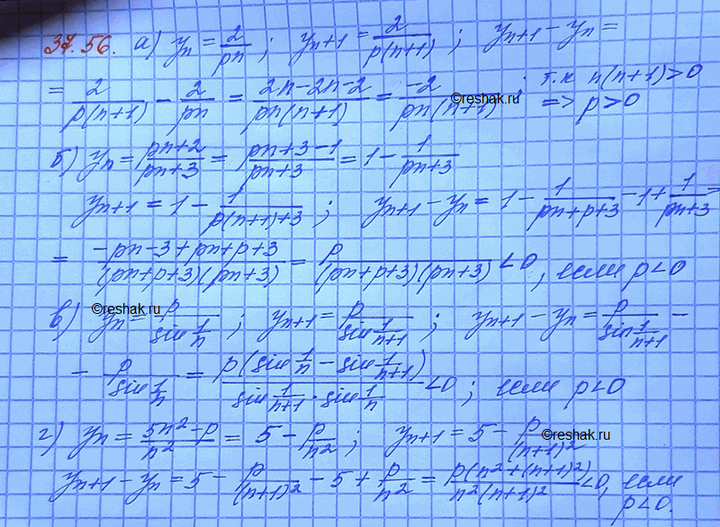 37.56. а) yn = 2/pn ; yn+1 = 2/p(n+1) ; yn+1 - yn =
= 2/p(n+1) - 2/pn = 2n-2n-2/pn(n+1) = -2/pn(n+1) ; т.к n(n+1)>0 => p>0
©reshak.ru
б) yn = pn+2/pn+3 = pn+3-1/pn+3 = 1 - 1/pn+3
yn+1 = 1 - 1/p(n+1)+3 ; yn+1 - yn = 1 - 1/pn+p+3 - 1 + 1/pn+3 =
= -pn-3+pn+p+3/(pn+p+3)(pn+3) = p/(pn+p+3)(pn+3) <0 , если p<0
©reshak.ru
в) yn = p/sin 1/n ; yn+1 = p/sin 1/n+1 ; yn+1 - yn = p/sin 1/n+1 -
- p/sin 1/n = p(sin 1/n - sin 1/n+1)/sin 1/n+1 · sin 1/n <0 ; если p<0
г) yn = 5n²-p/n² = 5 - p/n² ; yn+1 = 5 - p/(n+1)²
©reshak.ru
yn+1 - yn = 5 - p/(n+1)² - 5 + p/n² = p(n²+(n+1)²)/n²(n+1)² <0, если
p<0.